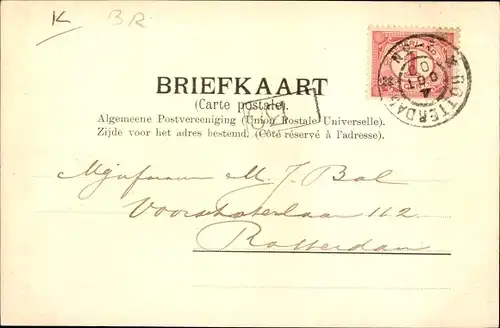 K BR
BRIEFKAART
(Carte postale).
Algemeene Postvereeniging (Union Postale Universelle).
Zijde voor het adres bestemd. (Côté réservé à l'adresse).
M. J. Bal
112
Rotterdam
ROTTERDAM
4 OCT
1